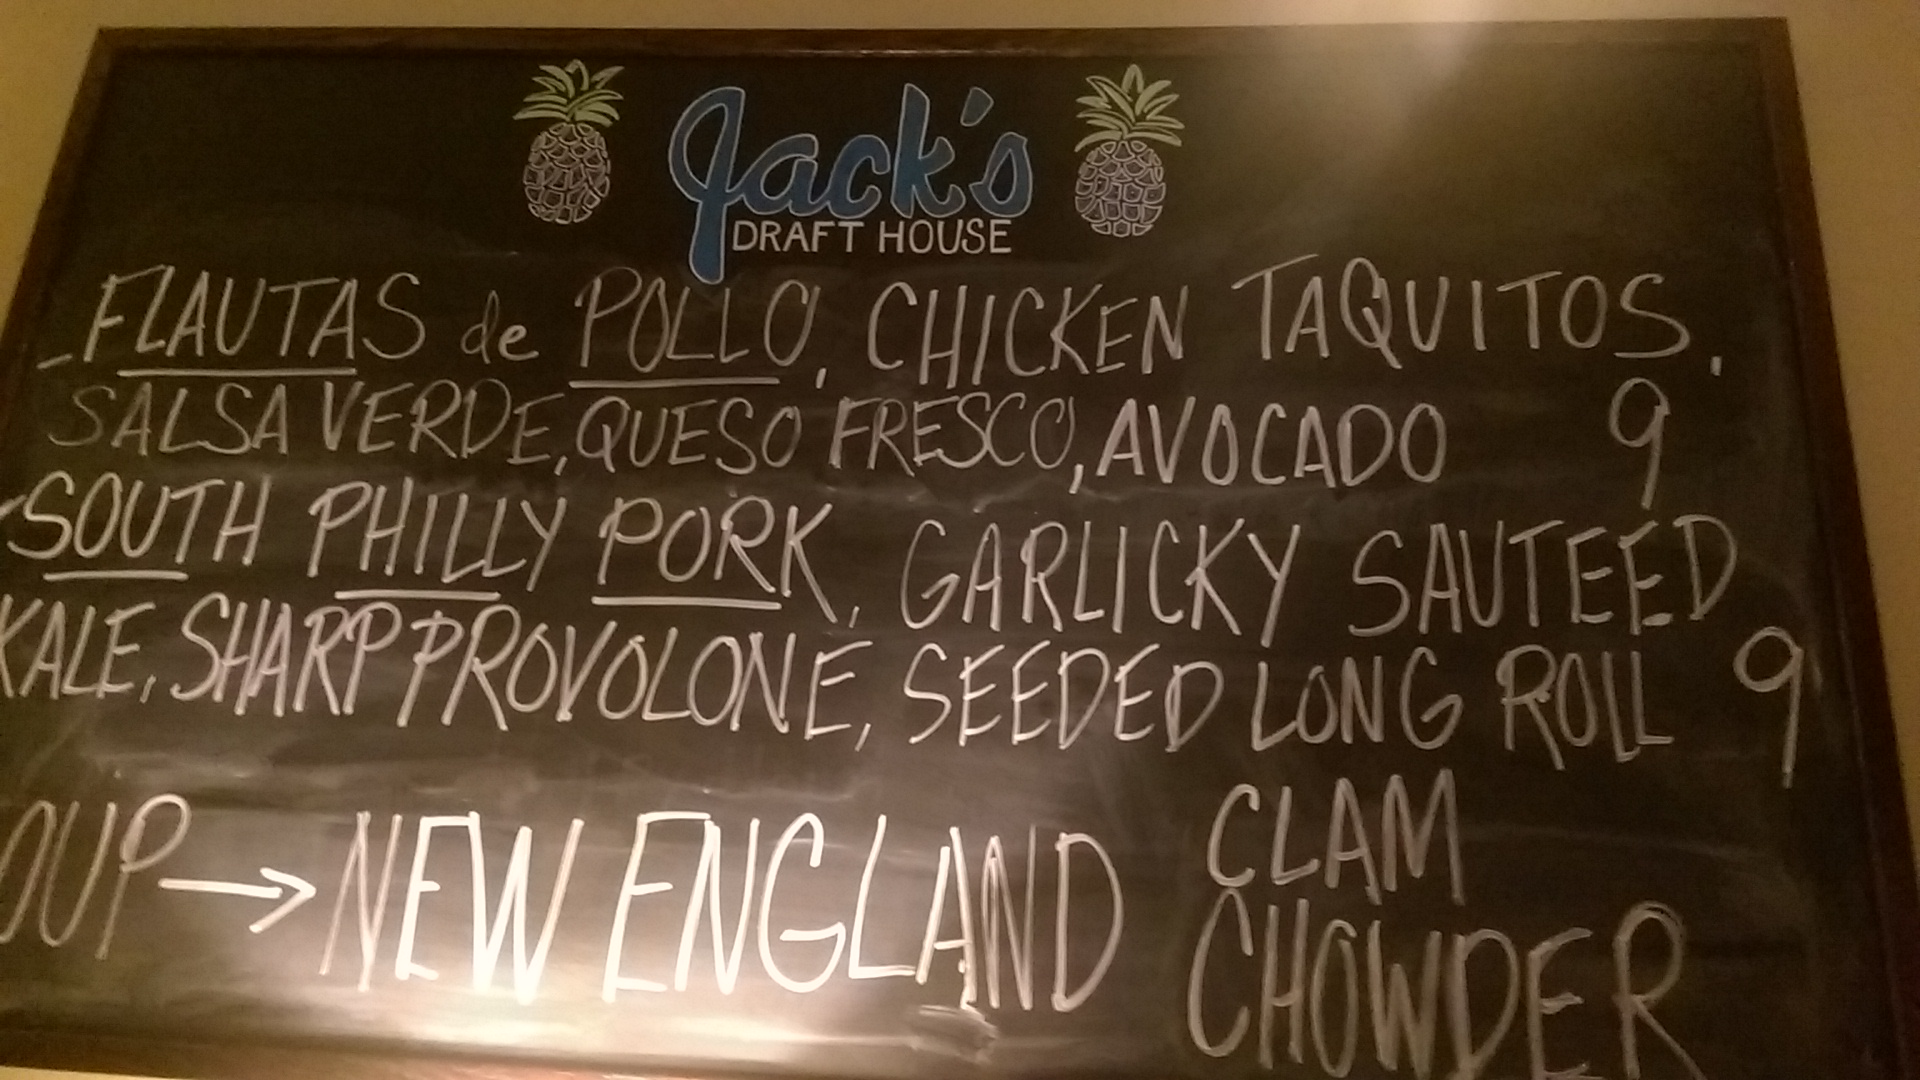 Jack's
DRAFT HOUSE
-FLAUTAS de POLLO, CHICKEN TAQUITOS,
SALSA VERDE, QUESO FRESCO, AVOCADO 9
-SOUTH PHILLY PORK, GARLICKY SAUTEED
KALE, SHARP PROVOLONE, SEEDED LONG ROLL 9
OUP → NEW ENGLAND CLAM
CHOWDER